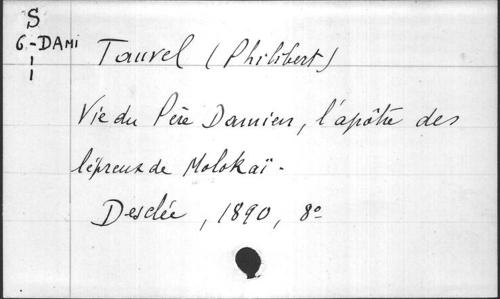 S
G-DAMI
1
Tauvel (Philibert)
Vie du Père Damien, l'apôtre des
lépreux de Molokaï.
Desclée, 1890, 8º